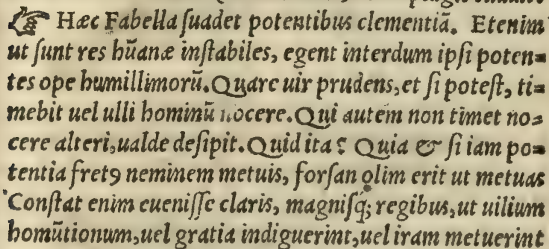 ☞ Hæc Fabella ſuadet potentibus clementiã. Etenim
ut ſunt res hũanæ inſtabiles, egent interdum ipſi poten⸗
tes ope humillimorũ. Quare uir prudens, et ſi poteſt, ti⸗
mebit uel ulli hominũ nocere. Qui autem non timet no⸗
cere alteri, ualde deſipit. Quid ita? Quia & ſi iam po⸗
tentia fretꝰ neminem metuis, forſan olim erit ut metuas
Conſtat enim eueniſſe claris, magniſq; regibus, ut uilium
homũtionum, uel gratia indiguerint, uel iram metuerint